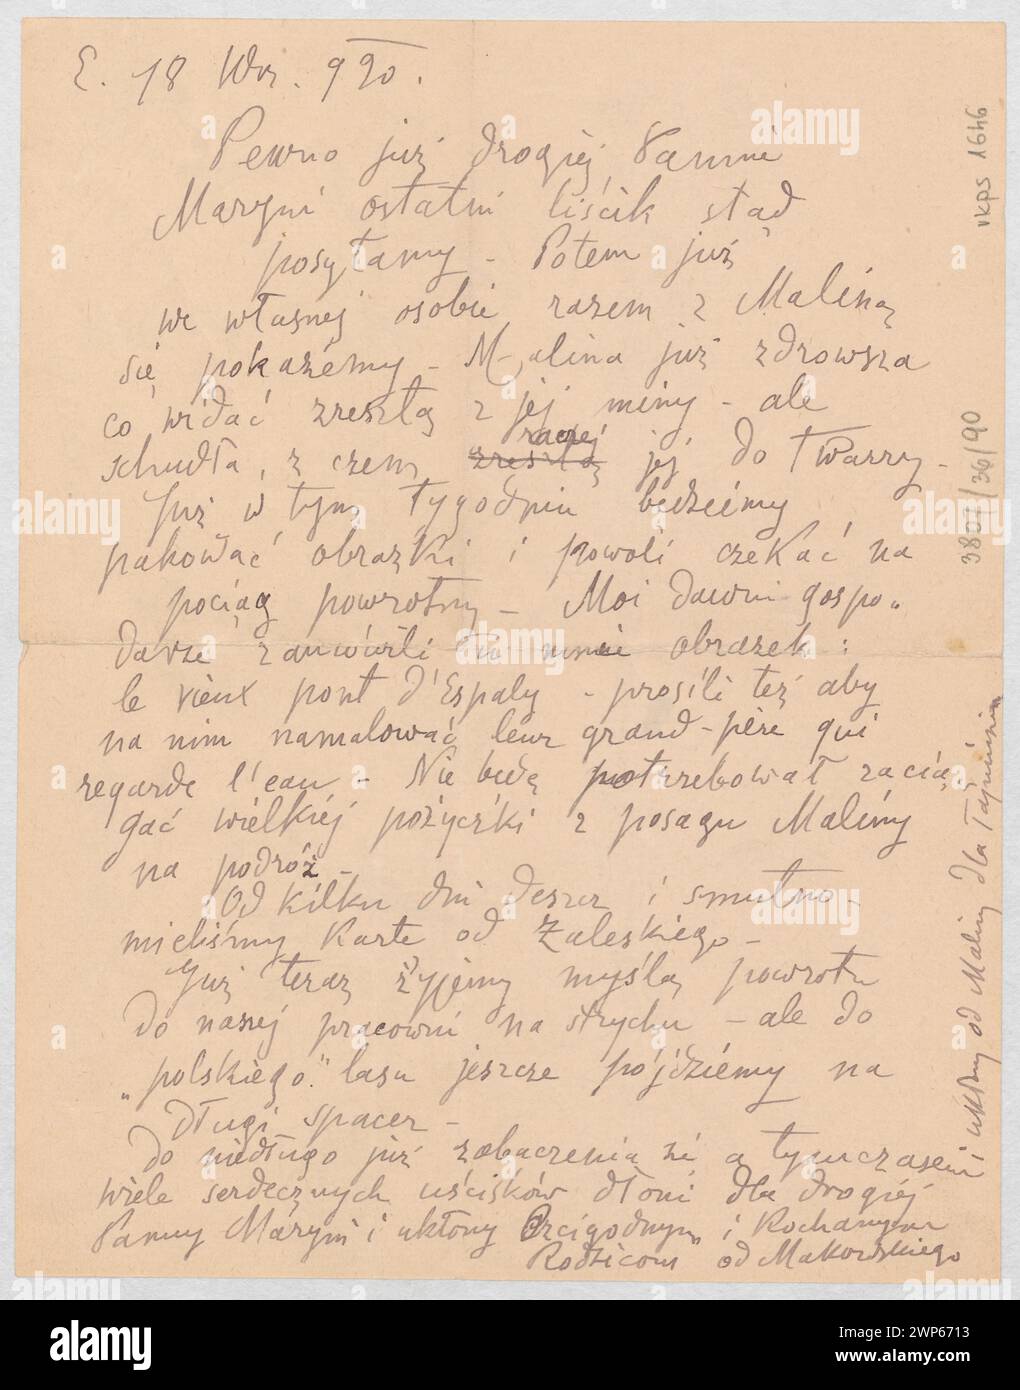 E. 18 Wrz. 920.
Pewno już drogiej Pannie
Maryni ostatni liścik stąd
posyłamy – Potem już
we własnej osobie razem z Maliną
się pokażemy – Malina już zdrowsza
co widać zresztą z jej miny – ale
schudła, z czem zresztą raczej jej do twarzy –
Już w tym tygodniu będziemy
pakować obrazki i powoli czekać na
pociąg powrotny – Moi dawni gospo„
darze zamówili u mnie obrazek:
le vieux pont d'Espaly – prosili też aby
na nim namalować leur grand-père qui
regarde l'eau – Nie będę potrzebował zacią„
gać wielkiej pożyczki z posagu Maliny
na podróż –
Od kilku dni deszcz i smutno –
mieliśmy kartę od Zaleskiego –
Już teraz żyjemy myślą powrotu
do naszej pracowni na strychu – ale do
„polskiego" lasu jeszcze pójdziemy na
długi spacer –
Do niedługo już zobaczenia się a tymczasem
wiele serdecznych uścisków dłoni dla drogiej
Panny Maryni i ukłony Czcigodnym i Kochanym
Rodzicom od Makowskiego
ukłony od Maliny dla
VKPS 1646
3807/36/90
alamy
alamy
Image ID: 2WP6713
www.alamy.com